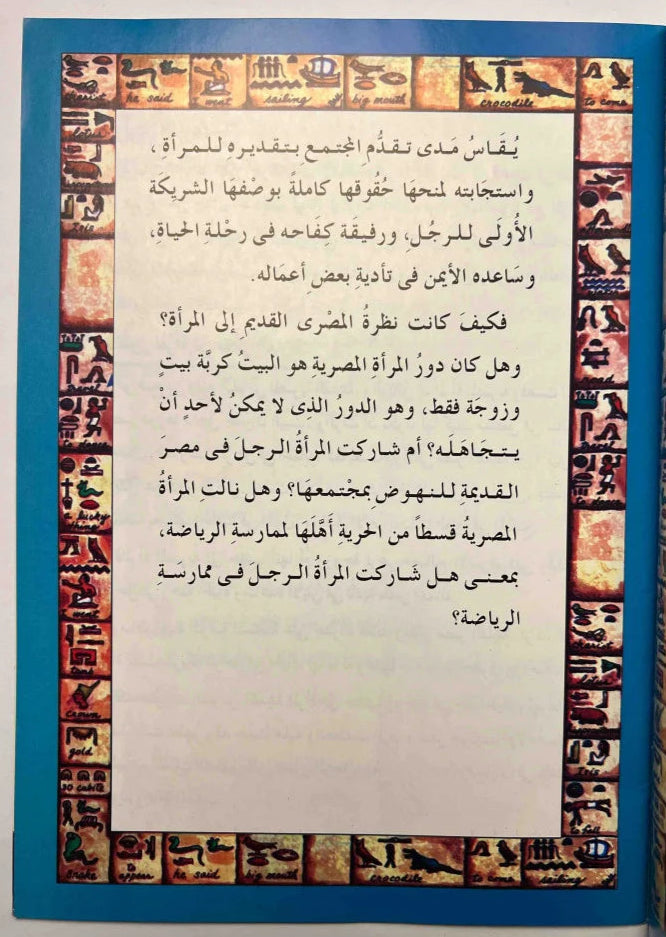 chariot he said I went sailing big mouth crocodile to come
يُقَاسُ مَدى تقدُّمِ المجتمع بتقديرهِ للمرأةِ،
واستجَابته لمنحهَا حُقُوقها كاملةً بوصْفهَا الشريكَة
الأُولَى للرجُلِ، ورفيقَة كِفَاحه فى رحْلةِ الحياةِ،
وسَاعده الأيمن فى تأديةِ بعضِ أعمَاله.
فكيفَ كانت نظرةُ المصْرى القديمِ إلى المرأة؟
وهل كان دورُ المرأةِ المصريةِ هو البيتُ كربَّة بيتٍ
وزوجَة فقط، وهو الدورُ الذِى لا يمكنُ لأحدٍ أنْ
يتجَاهَلَه؟ أم شاركت المرأةُ الرجلَ فى مصرَ
القديمةِ للنهوضِ بمجْتمعهَا؟ وهل نالتِ المرأةُ
المصريةُ قسطاً من الحريةِ أهَّلَهَا لممارسةِ الرياضة،
بمعنى هل شَاركت المرأةُ الرجلَ فى ممارسَةِ
الرياضة؟
lotus
Isis
lucky
thing
I went
crown
gold
30 cubits
snake
chariot
Isis
to fall
to appear he said big mouth crocodile to come sailing